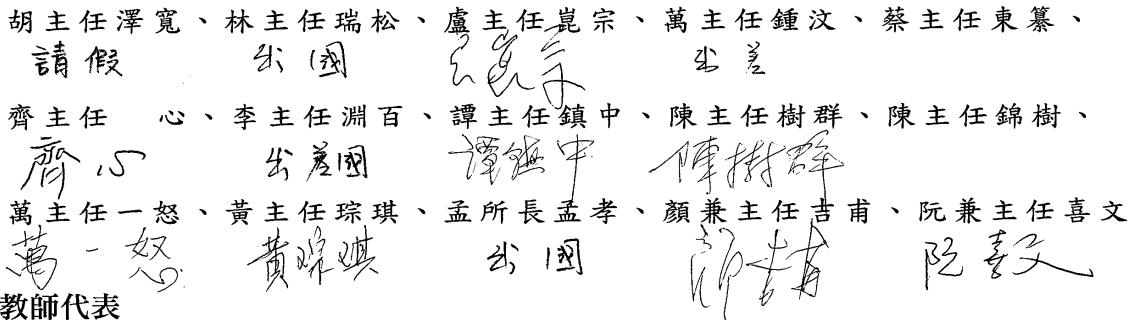 胡主任澤寬、林主任瑞松、盧主任崑宗、萬主任鍾汶、蔡主任東纂、
請假 出國 盧崑宗 出差
齊主任　心、李主任淵百、譚主任鎮中、陳主任樹群、陳主任錦樹、
齊心 出差國 譚鎮中 陳樹群
萬主任一怒、黃主任琮琪、孟所長孟孝、顏兼主任吉甫、阮兼主任喜文
萬一怒 黃琮琪 出國 顏吉甫 阮喜文
教師代表